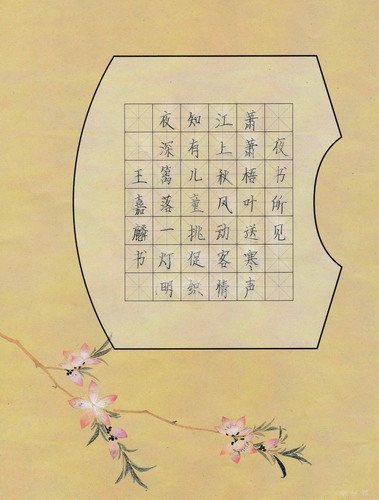 夜书所见
萧萧梧叶送寒声
江上秋风动客情
知有儿童挑促织
夜深篱落一灯明
王嘉麟书